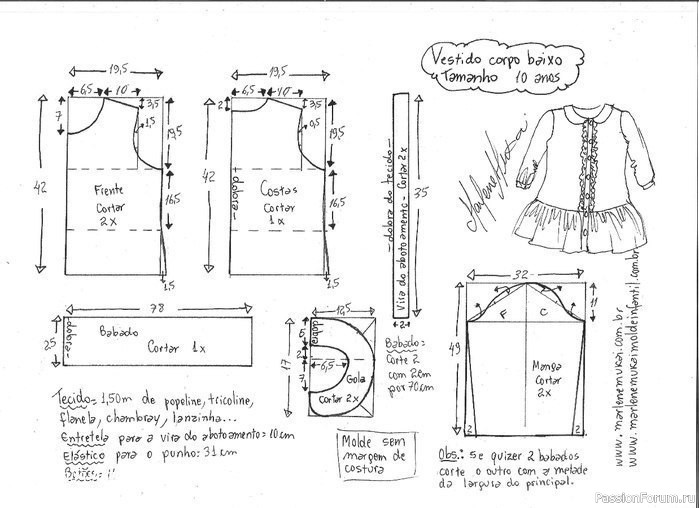 Vestido corpo baixo
Tamanho 10 anos
19,5
6,5 10
3,5
7
1,5
19,5
42
Frente
Cortar
2x
16,5
1,5
19,5
6,5 10
2
3,5
0,5
19,5
42
dobra
Costas
Cortar
1x
16,5
1,5
dobra do tecido
Vira do abotoamento - Cortar 2x
35
2
78
25
dobra
Babado
Cortar 1x
12,5
17
dobra
5
2
7
6,5
Gola
Cortar 2x
Babado:
Corte 2
com 2cm
por 70cm
32
11
49
F C
Manga
Cortar
2x
2 2
www.marlenemukai.com.br
www.marlenemukaimoldeinfantil.com.br
Tecido: 1,50m de popeline, tricoline,
flanela, chambray, lanzinha...
Entretela para a vira do abotoamento: 10cm
Elástico para o punho: 31cm
Botões: 11
Molde sem
margem de
costura
Obs.: Se quizer 2 babados
corte o outro com a metade
da largura do principal.
PassionForum.ru